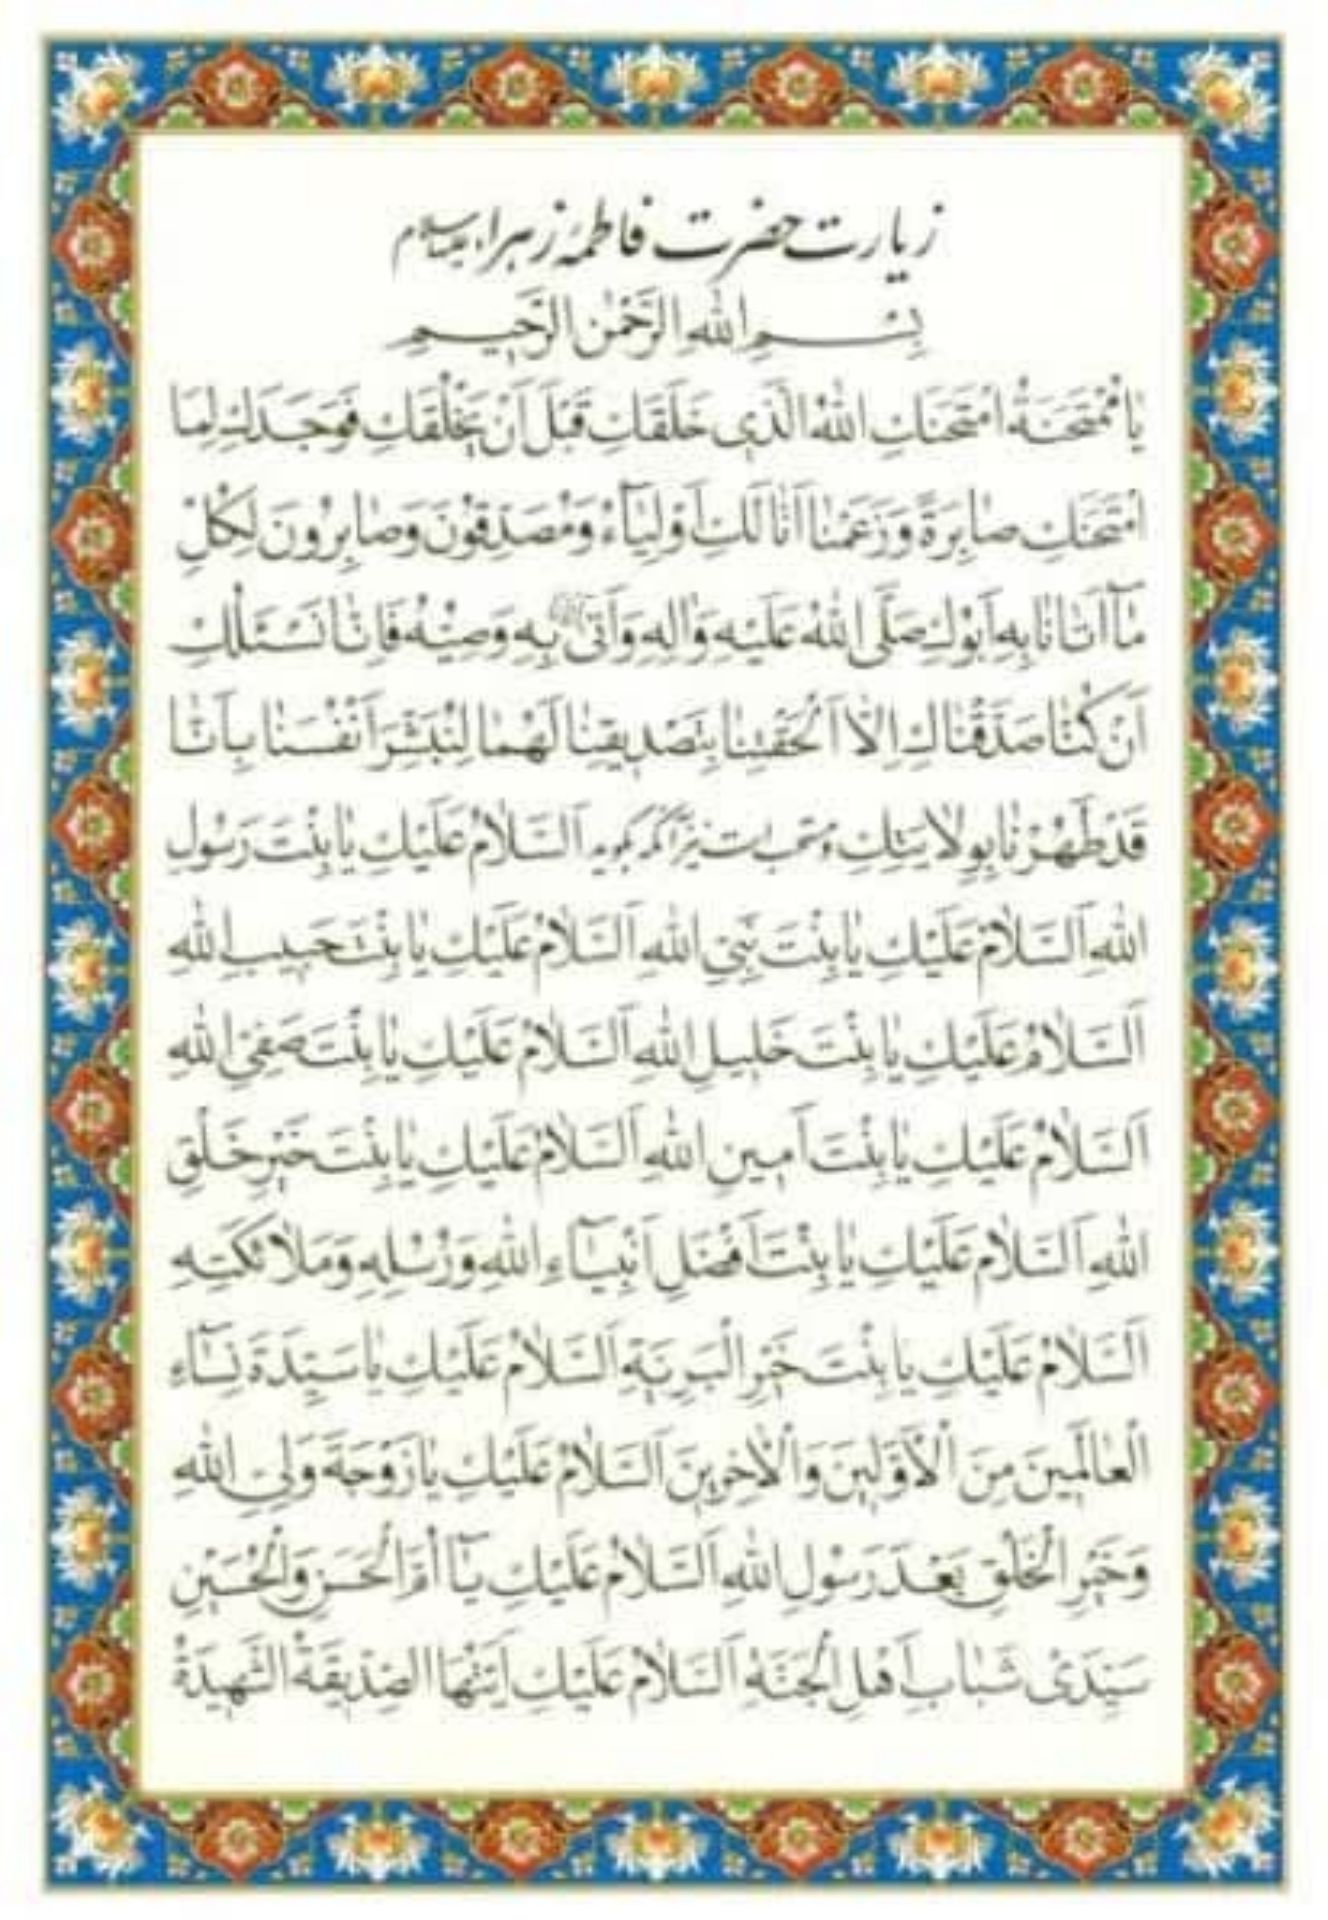 زیارت حضرت فاطمهٔ زهراء علیهاالسلام
بِسْمِ اللهِ الرَّحْمٰنِ الرَّحیمِ
یٰا مُمْتَحَنَةُ امْتَحَنَكِ اللهُ الَّذی خَلَقَكِ قَبْلَ اَنْ یَخْلُقَكِ فَوَجَدَكِ لِمَا
امْتَحَنَكِ صٰابِرَةً وَ زَعَمْنٰا اَنّٰا لَكِ اَوْلِیٰآءُ وَ مُصَدِّقُونَ وَ صٰابِرُونَ لِكُلِّ
مٰآ اَتٰانٰا بِهِ اَبُوكِ صَلَّی اللهُ عَلَیْهِ وَ اٰلِهِ وَ اَتیٰ بِهِ وَصِیُّهُ فَاِنّٰا نَسْئَلُكِ
اَنْ كُنّٰا صَدَّقْنٰاكِ اِلّٰا اَلْحَقْتِنٰا بِتَصْدیقِنٰا لَهُمٰا لِنُبَشِّرَ اَنْفُسَنٰا بِاَنّٰا
قَدْ طَهُرْنٰا بِوِلٰایَتِكِ و مستحب است نیز آنكه بگوید اَلسَّلٰامُ عَلَیْكِ یٰا بِنْتَ رَسُولِ
اللهِ اَلسَّلٰامُ عَلَیْكِ یٰا بِنْتَ نَبِیِّ اللهِ اَلسَّلٰامُ عَلَیْكِ یٰا بِنْتَ حَبیبِ اللهِ
اَلسَّلٰامُ عَلَیْكِ یٰا بِنْتَ خَلیلِ اللهِ اَلسَّلٰامُ عَلَیْكِ یٰا بِنْتَ صَفِیِّ اللهِ
اَلسَّلٰامُ عَلَیْكِ یٰا بِنْتَ اَمینِ اللهِ اَلسَّلٰامُ عَلَیْكِ یٰا بِنْتَ خَیْرِ خَلْقِ
اللهِ اَلسَّلٰامُ عَلَیْكِ یٰا بِنْتَ اَفْضَلِ اَنْبِیٰآءِ اللهِ وَ رُسُلِهِ وَ مَلٰائِكَتِهِ
اَلسَّلٰامُ عَلَیْكِ یٰا بِنْتَ خَیْرِ الْبَرِیَّةِ اَلسَّلٰامُ عَلَیْكِ یٰا سَیِّدَةَ نِسٰآءِ
الْعٰالَمینَ مِنَ الْاَوَّلینَ وَ الْاٰخِرینَ اَلسَّلٰامُ عَلَیْكِ یٰا زَوْجَةَ وَلِیِّ اللهِ
وَ خَیْرِ الْخَلْقِ بَعْدَ رَسُولِ اللهِ اَلسَّلٰامُ عَلَیْكِ یٰآ اُمَّ الْحَسَنِ وَ الْحُسَیْنِ
سَیِّدَیْ شَبٰابِ اَهْلِ الْجَنَّةِ اَلسَّلٰامُ عَلَیْكِ اَیَّتُهَا الصِّدّیقَةُ الشَّهیدَةُ